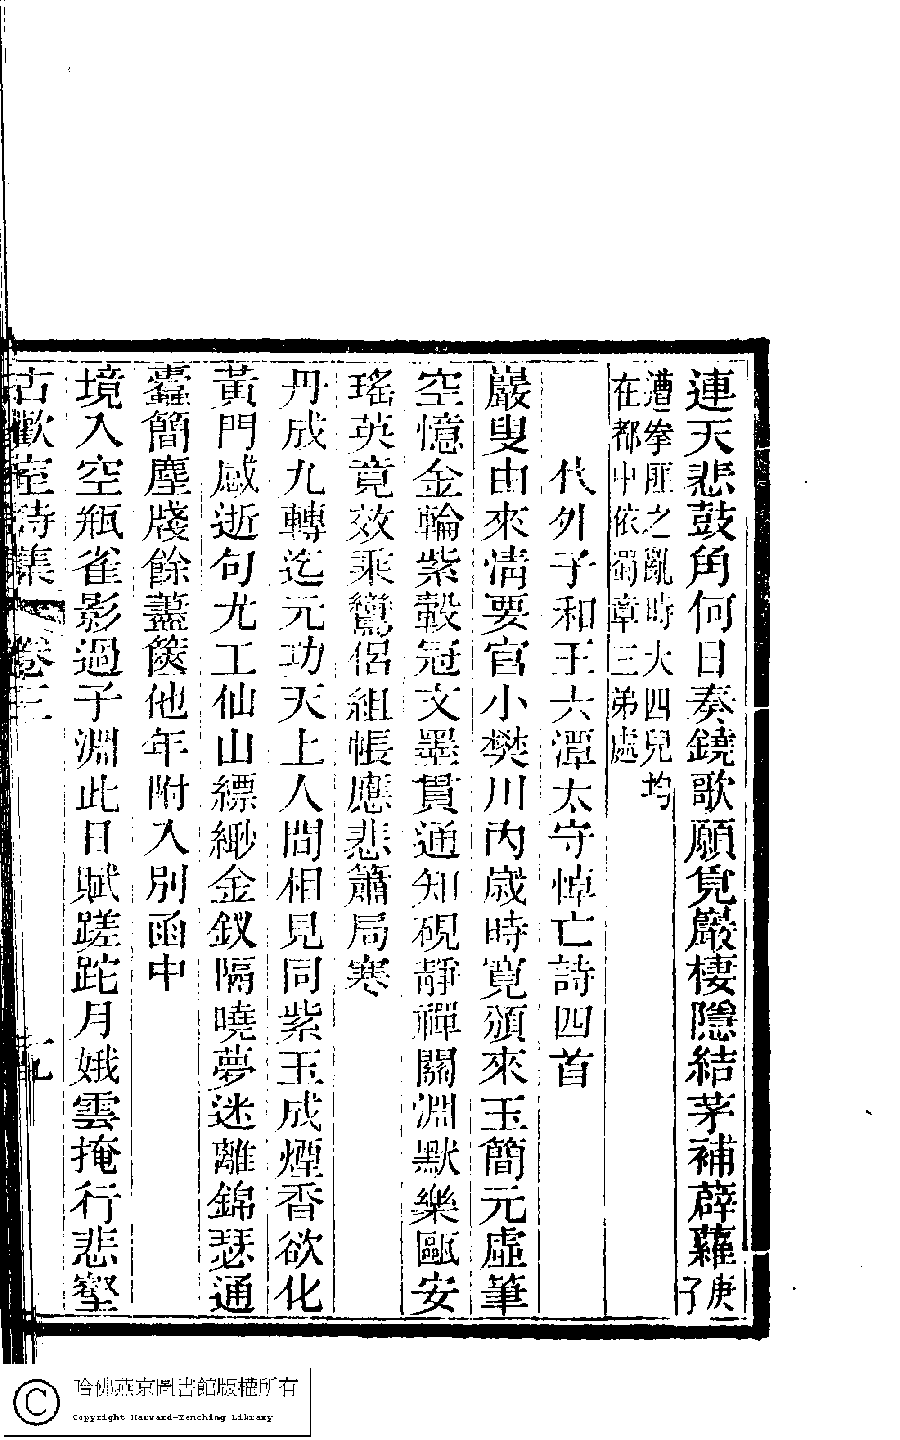 連天悲鼓角何日奏鐃歌願凭巖棲隱結茅補薜蘿庚子
遭拳匪之亂時大四兒均
在都中依蜀章三弟處
代外子和王六潭太守悼亡詩四首
巖叟由來清要官小樊川內歲時寬頒來玉簡元虛筆
空憶金輪紫轂冠文墨貫通知硯靜禪關淵默樂甌安
瑤英竟效乘鸞侶組帳應悲簫局寒
丹成九轉迄元功天上人間相見同紫玉成煙香欲化
黃門感逝句尤工仙山縹緲金釵隔曉夢迷離錦瑟通
蠹簡塵牋餘藎篋他年附入別函中
境入空瓶雀影過子淵此日賦蹉跎月娥雲掩行悲壑
古歡室詩集 卷三 九
哈佛燕京圖書館版權所有
Copyright Harvard-Yenching Library